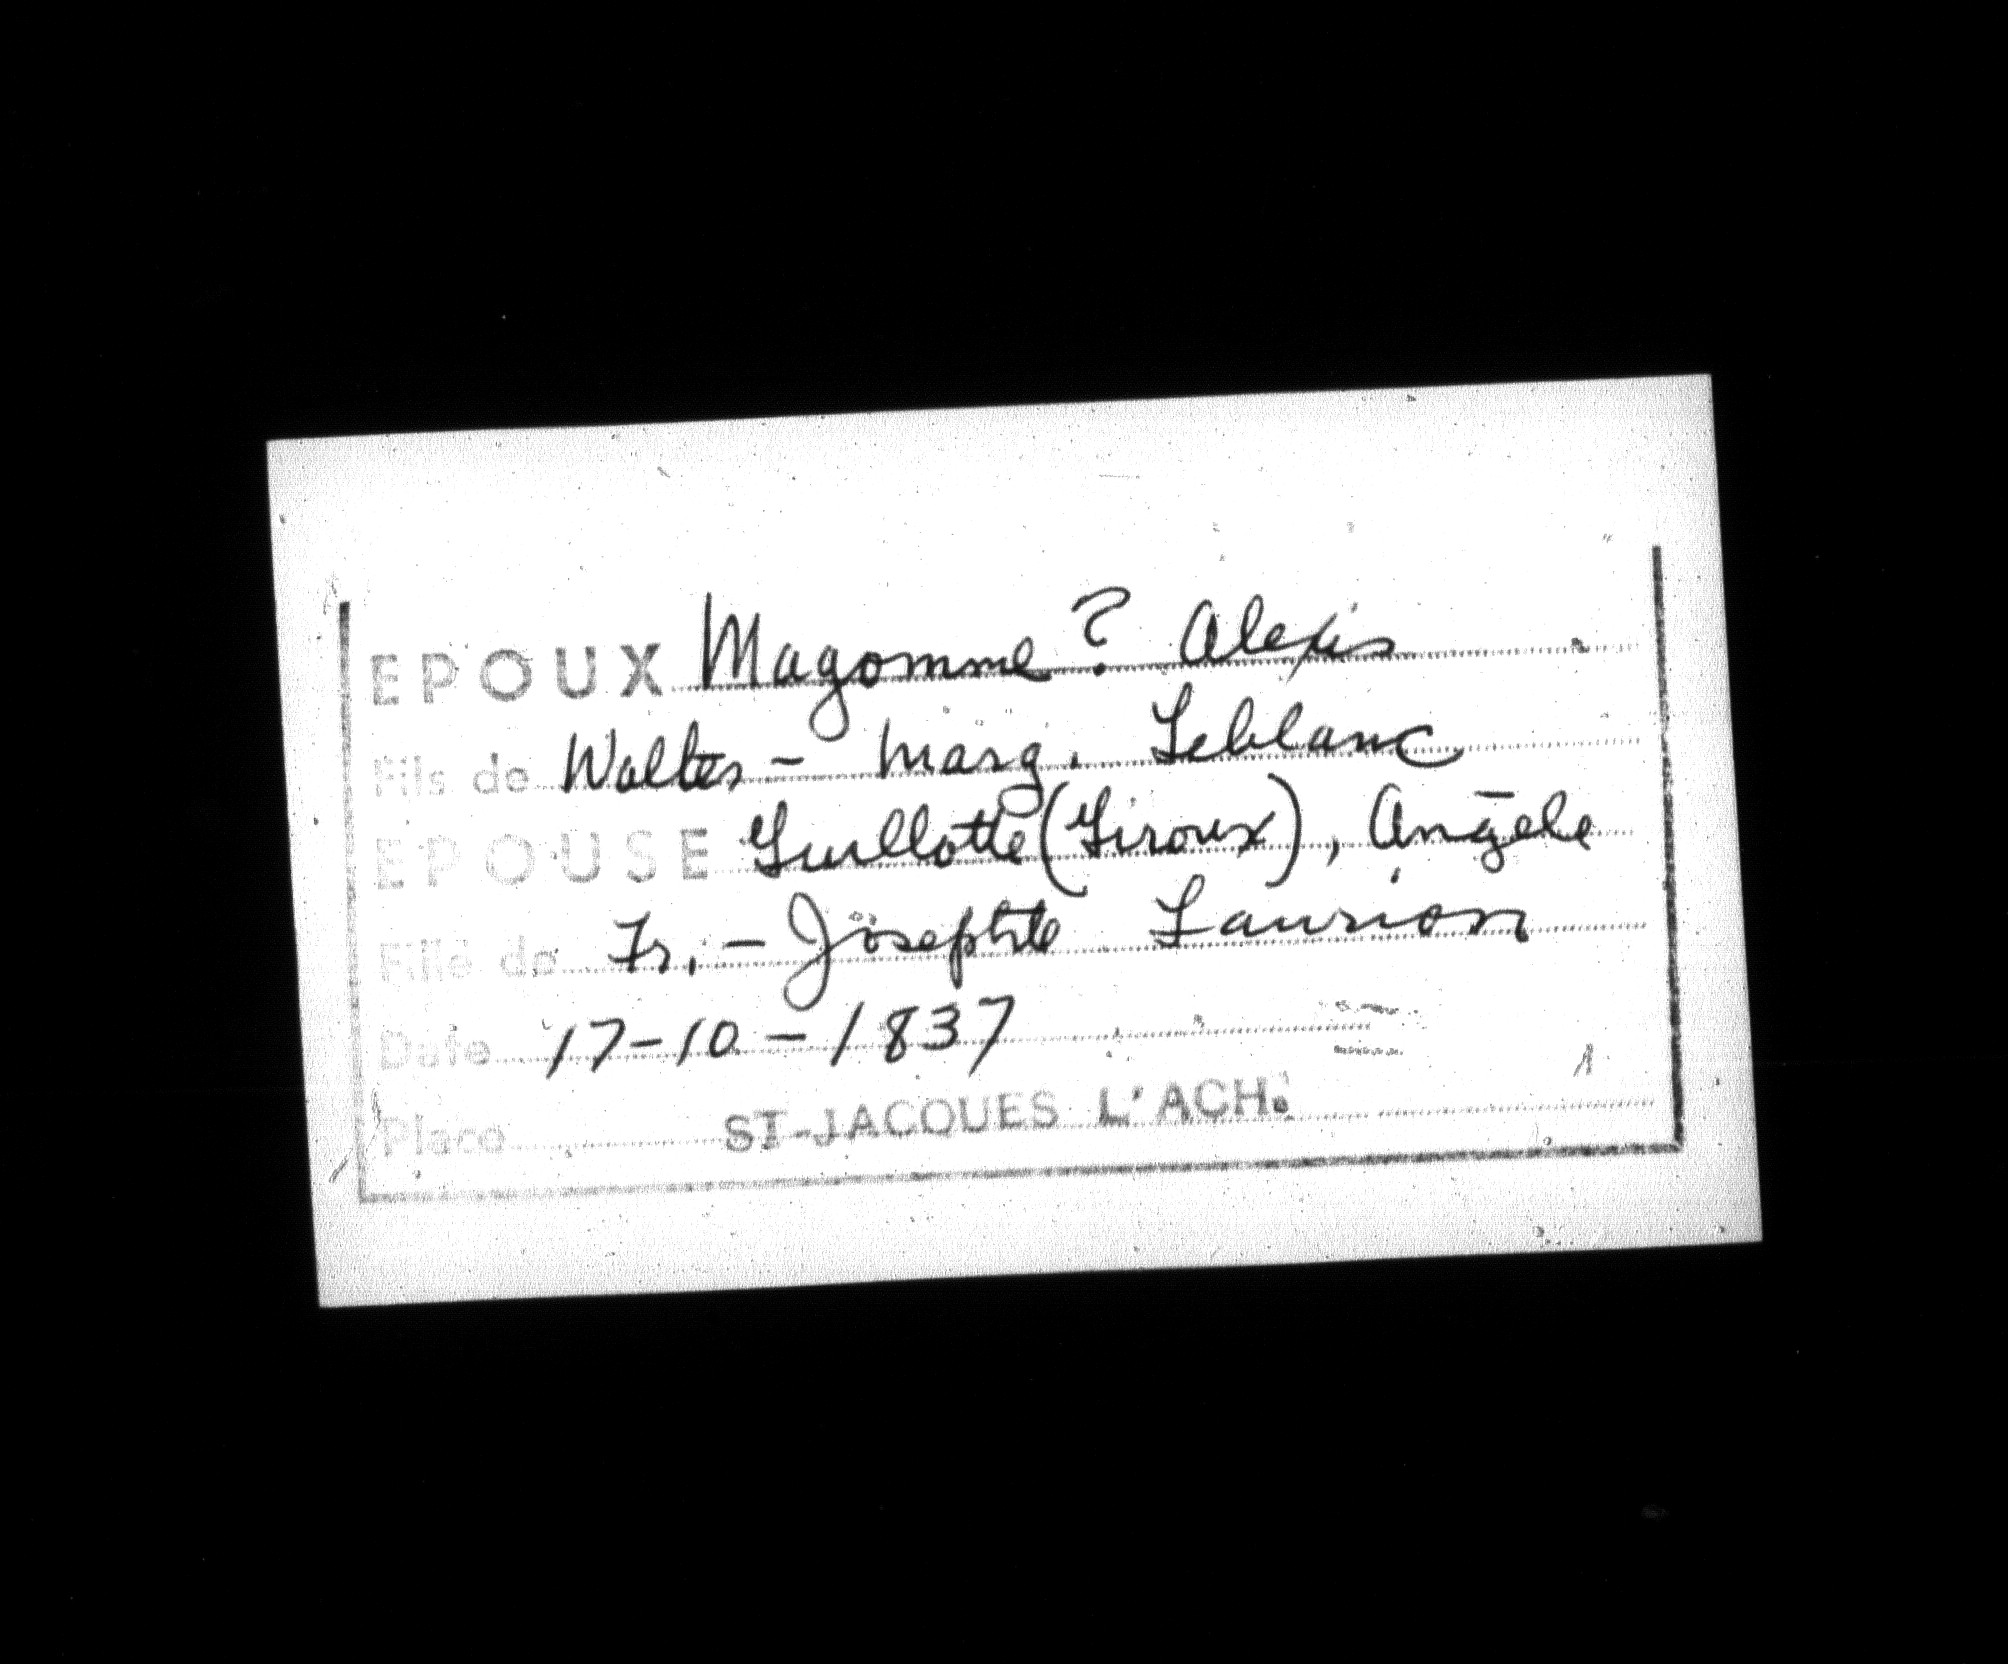 EPOUX Magomme ? Alexis
Fils de Walter - Marg. Leblanc
EPOUSE Guillotte (Giroux), Angèle
Fille de Fr. - Josephte Laurion
Date 17-10-1837
Place ST-JACQUES L'ACH.